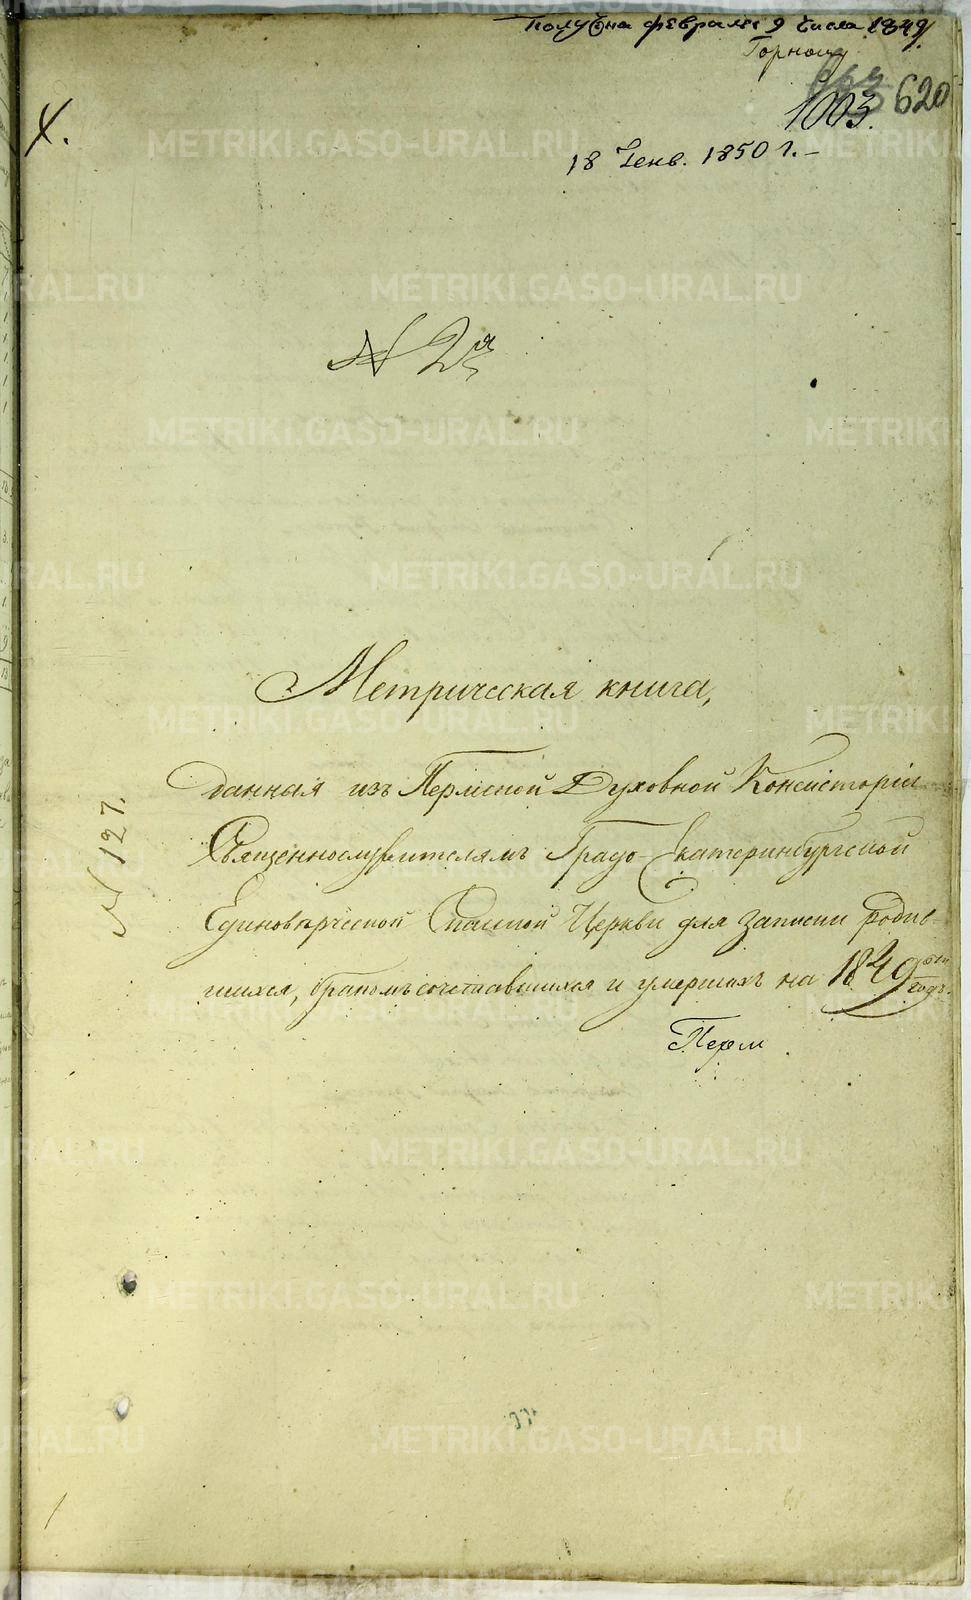 Получена февраля 9 числа 1849/
Горному
620
1003.
18 Генв. 1850 г.
N 2я
N 127.
Метрическая книга,
данная изъ Пермской Духовной Консисторіи
Священнослужителямъ Градо-Екатеринбургской
Единоверческой Спасской Церкви для записи родив-
шихся, бракомъ сочетавшихся и умершихъ на 1849 годъ.
METRIKI.GASO-URAL.RU